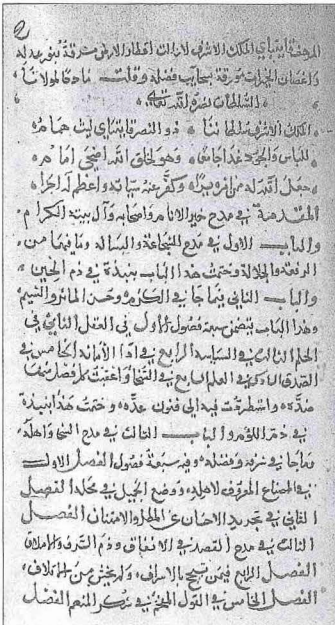 الملك الاشرف لا زالت اقطار الارض مشرقة بنور عدله
واغصان الخيرات مورقة بسحايب فضله وقلت مادحا لمولانا
السلطان نصره الله تعالى
الملك الاشرف سلطاننا ذو النصر قايتباى ليث همام
للباس والجود غدا جامعا وهو لخلق الله اضحى امام
جعل الله له من امره يسرا وكفر عنه سياته واعظم له اجرا
المقدمة في مدح خير الانام واصحابه وآل بيته الكرام
والباب الاول في مدح الشجاعة والبسالة وما فيهما من
الرفعة والجلالة وختمت هذا الباب بنبذة في ذم الجبن
والباب الثاني فيما جا في الكرم وحسن الماثر والشيم
وهذا الباب يتضمن سبعة فصول الاول في العقل الثاني في
الحلم الثالث في السياسة الرابع في اداء الامانة الخامس في
الصدق السادس في العلم السابع في السخا واعقبت كل فصل منها
ضده واستطردت فيه الى فنون عده وختمت هذا بنبذة
في ذم اللؤم والباب الثالث في مدح السخا واهله
وما جا في شرفه وفضله وفيه سبعة فصول الفصل الاول
في اصطناع المعروف لاهله ووضع الجميل في محله الفصل
الثاني في تجريد الاحسان عن المطل والامتنان الفصل
الثالث في مدح القصد في الانفاق وذم السرف والاملاق
الفصل الرابع فيمن سمح بالاسراف ولم يخش من الاتلاف
الفصل الخامس في القول في شكر المنعم الفصل